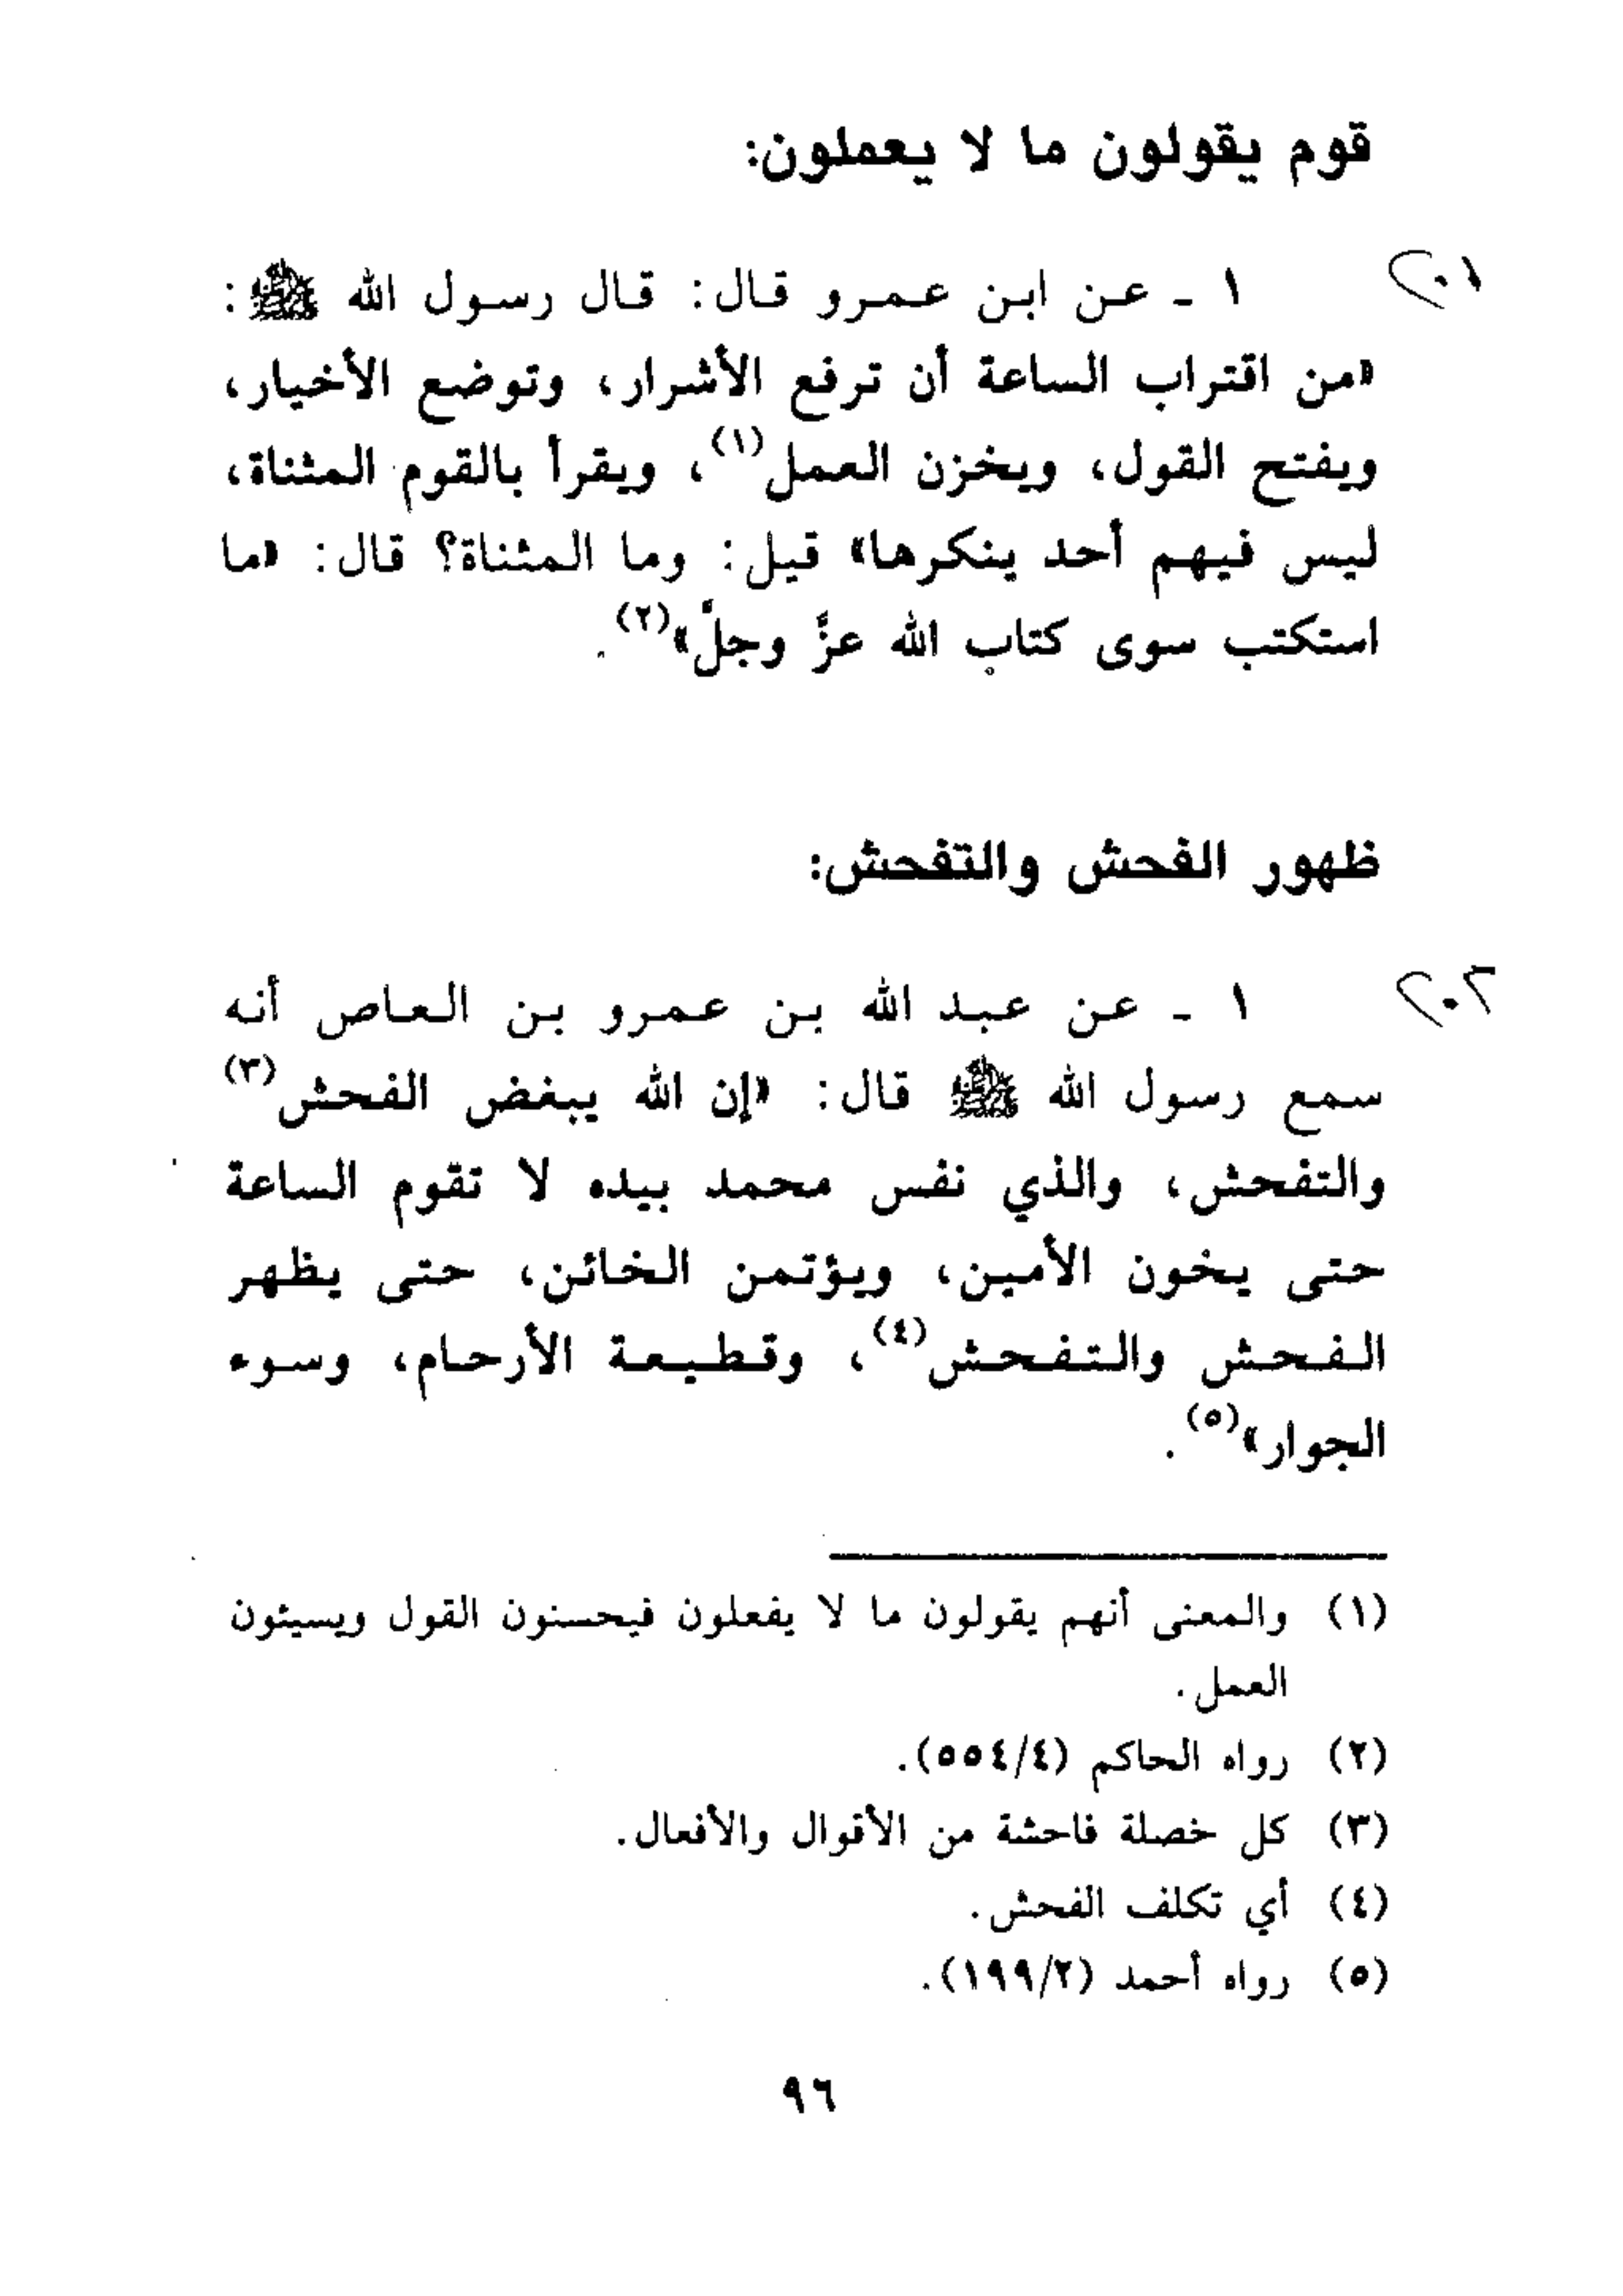 قوم يقولون ما لا يعملون:
٢٠١
١ ـ عن ابن عمرو قال: قال رسول الله ﷺ:
«من اقتراب الساعة أن ترفع الأشرار، وتوضع الأخيار،
ويفتح القول، ويخزن العمل(١)، ويقرأ بالقوم المثناة،
ليس فيهم أحد ينكرها» قيل: وما المثناة؟ قال: «ما
استكتب سوى كتاب الله عزَّ وجلَّ»(٢).
ظهور الفحش والتفحش:
٢٠٢
١ ـ عن عبد الله بن عمرو بن العاص أنه
سمع رسول الله ﷺ قال: «إن الله يبغض الفحش(٣)
والتفحش، والذي نفس محمد بيده لا تقوم الساعة
حتى يخون الأمين، ويؤتمن الخائن، حتى يظهر
الفحش والتفحش(٤)، وقطيعة الأرحام، وسوء
الجوار»(٥).
(١) والمعنى أنهم يقولون ما لا يفعلون فيحسنون القول ويسيئون
العمل.
(٢) رواه الحاكم (٥٥٤/٤).
(٣) كل خصلة فاحشة من الأقوال والأفعال.
(٤) أي تكلف الفحش.
(٥) رواه أحمد (١٩٩/٢).
٩٦